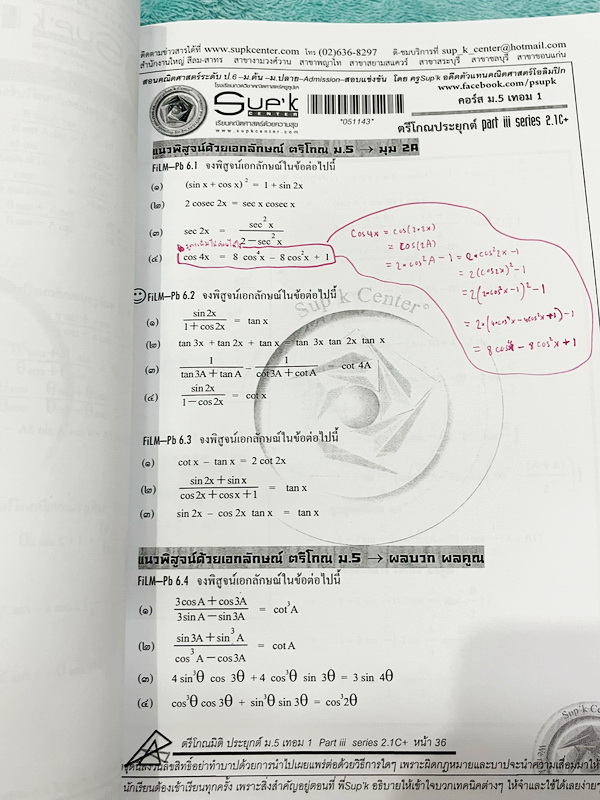 ติดตามข่าวสารได้ที่ www.supkcenter.com โทร (02)636-8297 ติ-ชมบริการที่ sup_k_center@hotmail.com
สำนักงานใหญ่ สีลม-สาทร สาขางามวงศ์วาน สาขาพญาไท สาขาสยามสแควร์ สาขาสระบุรี สาขาชลบุรี สาขาขอนแก่น
สอนคณิตศาสตร์ระดับ ป.6 –ม.ต้น –ม.ปลาย-Admission-สอบแข่งขัน โดย ครูSup'k อดีตตัวแทนคณิตศาสตร์โอลิมปิก
www.facebook.com/psupk
โรงเรียนกวดวิชาคณิตศาสตร์ครูซุปเค
Sup'k
CENTER
เรียนคณิตศาสตร์ด้วยความสุข
www.supkcenter.com
*051143*
คอร์ส ม.5 เทอม 1
ตรีโกณประยุกต์ part iii series 2.1C+
แนวพิสูจน์ด้วยเอกลักษณ์ ตรีโกณ ม.5 → มุม 2A
FiLM–Pb 6.1 จงพิสูจน์เอกลักษณ์ในข้อต่อไปนี้
(๑) (sin x + cos x)² = 1 + sin 2x
(๒) 2 cosec 2x = sec x cosec x
(๓) sec 2x = sec²x / 2 − sec²x
(๔) cos 4x = 8 cos⁴x − 8 cos²x + 1
cos 4x = cos(2·2x)
= cos(2A)
= 2cos²A − 1 = 2cos²2x − 1
= 2(cos2x)² − 1
= 2(2cos²x − 1)² − 1
= 8cos⁴x − 8cos²x + 1
FiLM–Pb 6.2 จงพิสูจน์เอกลักษณ์ในข้อต่อไปนี้
(๑) sin2x / 1 + cos2x = tan x
(๒) tan 3x + tan 2x + tan x = tan 3x tan 2x tan x
(๓) 1 / tan 3A + tan A − 1 / cot 3A + cot A = cot 4A
(๔) sin2x / 1 − cos2x = cot x
Sup'k Center
FiLM–Pb 6.3 จงพิสูจน์เอกลักษณ์ในข้อต่อไปนี้
(๑) cot x – tan x = 2 cot 2x
(๒) sin 2x + sin x / cos 2x + cos x + 1 = tan x
(๓) sin 2x – cos 2x tan x = tan x
แนวพิสูจน์ด้วยเอกลักษณ์ ตรีโกณ ม.5 → ผลบวก ผลคูณ
FiLM–Pb 6.4 จงพิสูจน์เอกลักษณ์ในข้อต่อไปนี้
(๑) 3cos A + cos 3A / 3 sin A − sin 3A = cot³A
(๒) sin 3A + sin³A / cos³A − cos3A = cot A
(๓) 4 sin³θ cos 3θ + 4 cos³θ sin 3θ = 3 sin 4θ
(๔) cos³θ cos 3θ + sin³θ sin 3θ = cos³2θ
ตรีโกณมิติ ประยุกต์ ม.5 เทอม 1 Part iii series 2.1C+ หน้า 36
สงวนลิขสิทธิ์อย่าทำบาปด้วยการนำไปเผยแพร่ต่อด้วยวิธีการใดๆ เพราะผิดกฎหมายและบาปจะนำความเสื่อมมาให้
นักเรียนต้องเข้าเรียนทุกครั้ง เพราะสิ่งสำคัญอยู่ตอนที่ พี่Sup'k อธิบายให้เข้าใจบวกเทคนิคต่างๆ ให้จำและใช้ได้เลยง่ายๆ